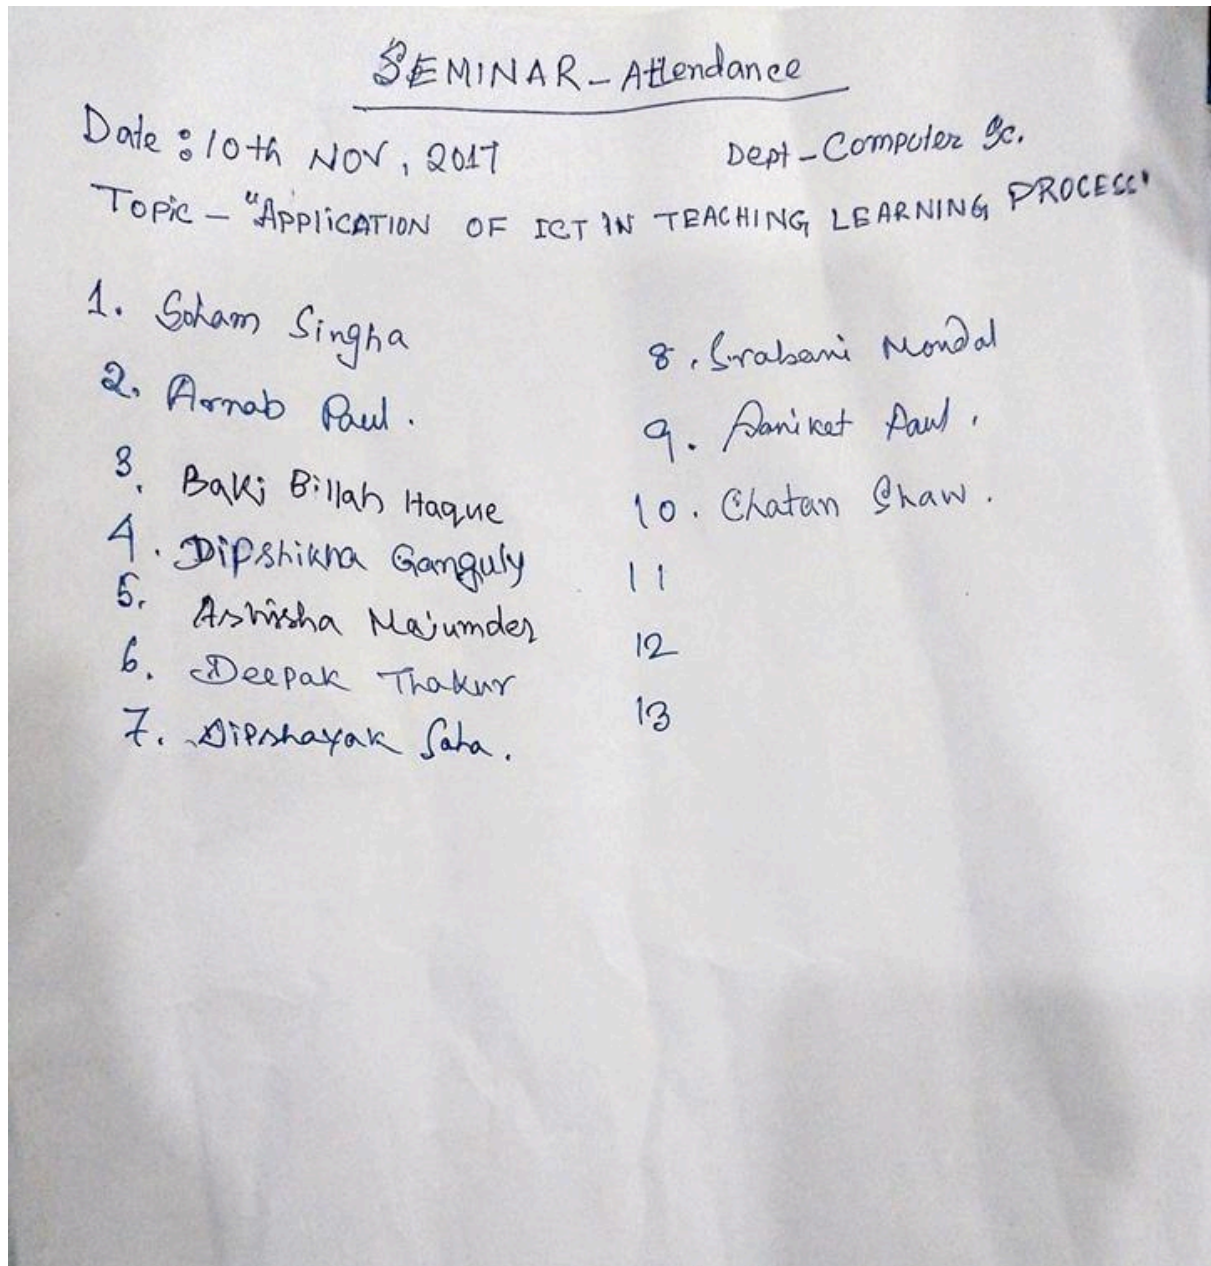 SEMINAR - Attendance
Date : 10th NOV, 2017
Dept - Computer Sc.
Topic - "APPLICATION OF ICT IN TEACHING LEARNING PROCESS"
1. Soham Singha
2. Arnab Paul.
3. Baki Billah Haque
4. Dipshikha Ganguly
5. Ashisha Majumder
6. Deepak Thakur
7. Dipshayak Saha.
8. Srabani Mondal
9. Aaniket Paul.
10. Chatan Shaw.
11
12
13